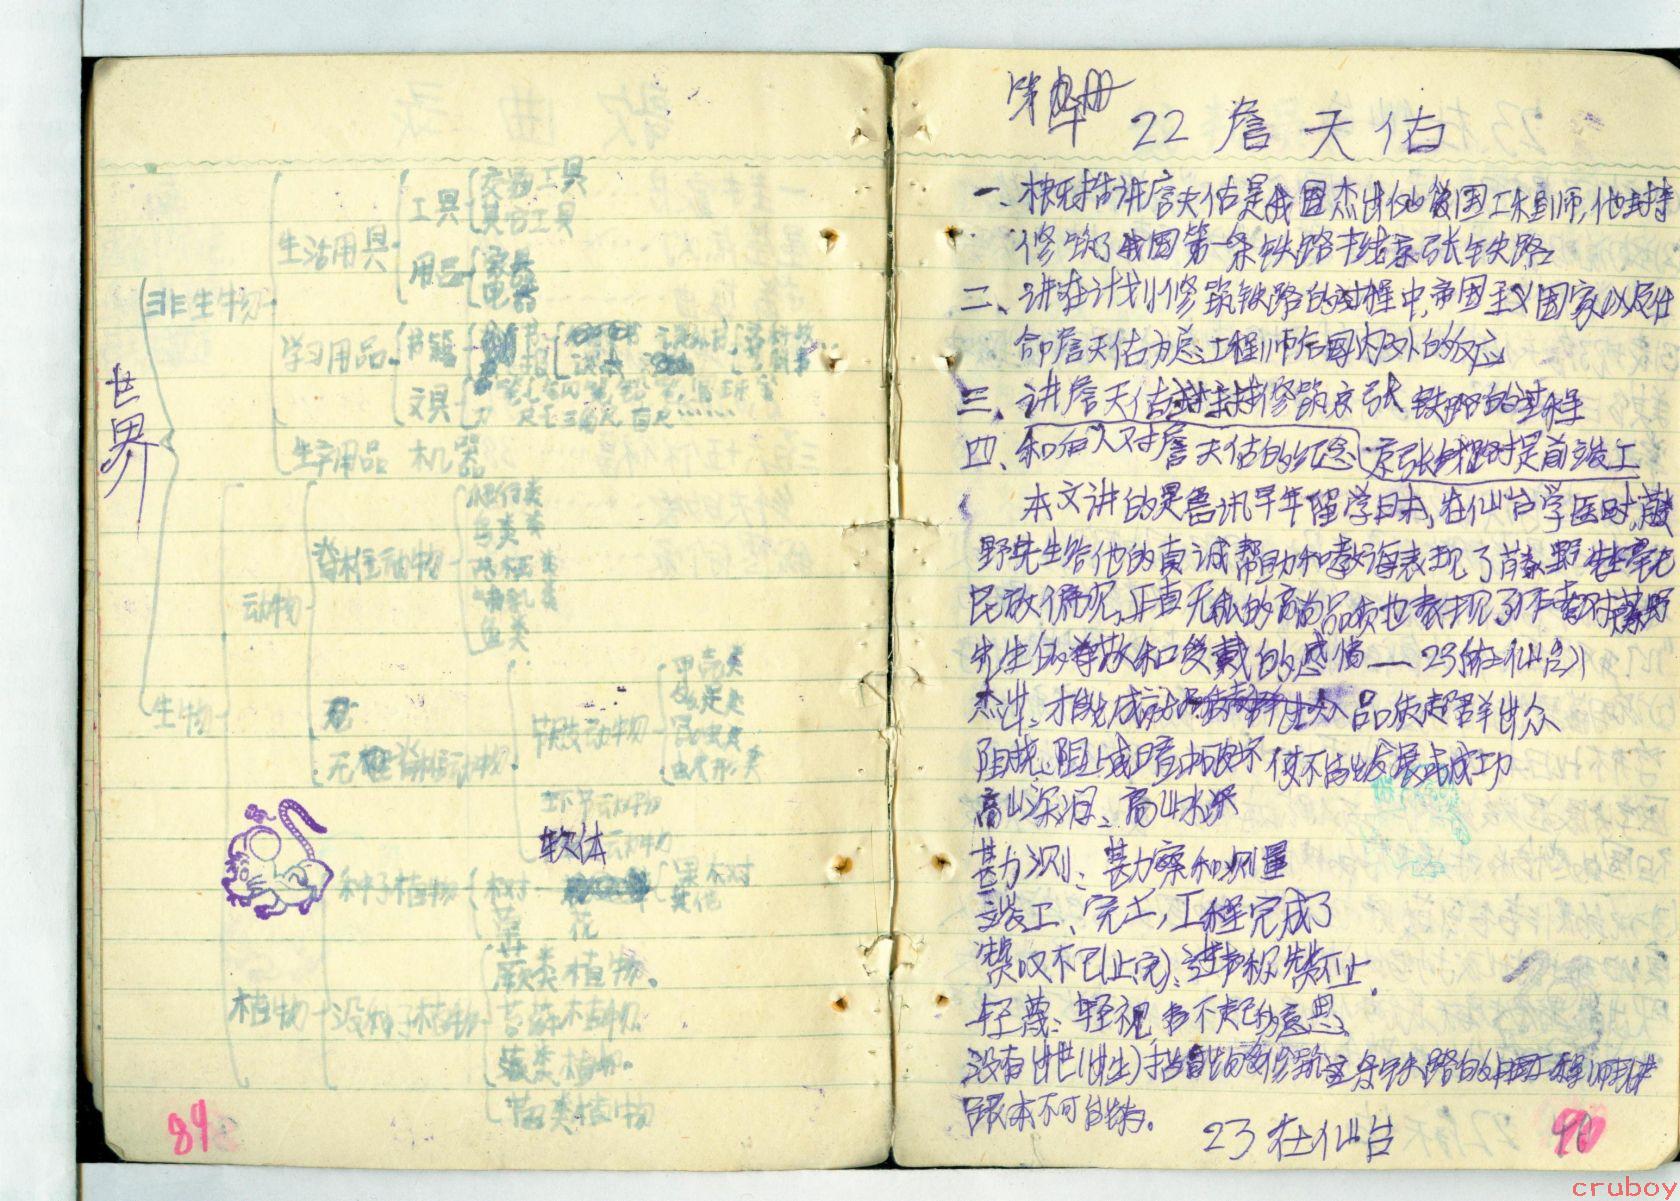 世界
非生物
生活用具
工具
交通工具
用品
家具
电器
学习用品
书籍
文具
生产用品 机器
生物
动物
脊椎动物
爬行类
鸟类
两栖类
哺乳类
鱼类
无脊椎动物
节肢动物
甲壳类
多足类
昆虫类
蛛形类
环节动物
软体动物
植物
种子植物
树
果树
其他
草
花
没种子植物
蕨类植物。
苔藓植物
藻类植物。
菌类植物
84
第 册
22 詹天佑
一、概括讲詹天佑是我国杰出的爱国工程师,他主持
修筑了我国第一条铁路干线京张铁路
二、讲在计划修筑铁路的过程中,帝国主义国家以及任
命詹天佑为总工程师后国内外的反应
三、讲詹天佑主持修筑京张铁路的过程
四、和后人对詹天佑的纪念 京张铁路提前竣工
本文讲的是鲁讯早年留学日本,在仙台学医时,藤
野先生给他的真诚帮助和教诲表现了藤野先生毫无
民族偏见,正直无私的高尚品质也表现了作者对藤野
先生的尊敬和爱戴的感情——23《在仙台》
杰出:才能成就 品质超群出众
阻挠:阻止或暗中破坏 使不能发展或成功
高山深涧:高山水深
勘测:勘察和测量
竣工:完工,工程完成了
赞叹不已(止完):连声称赞不止.
轻蔑:轻视,看不起的意思
没有出世(出生)指能够修筑这条铁路的中国工程师
根本不可能有。
23 在仙台
90
cruboy